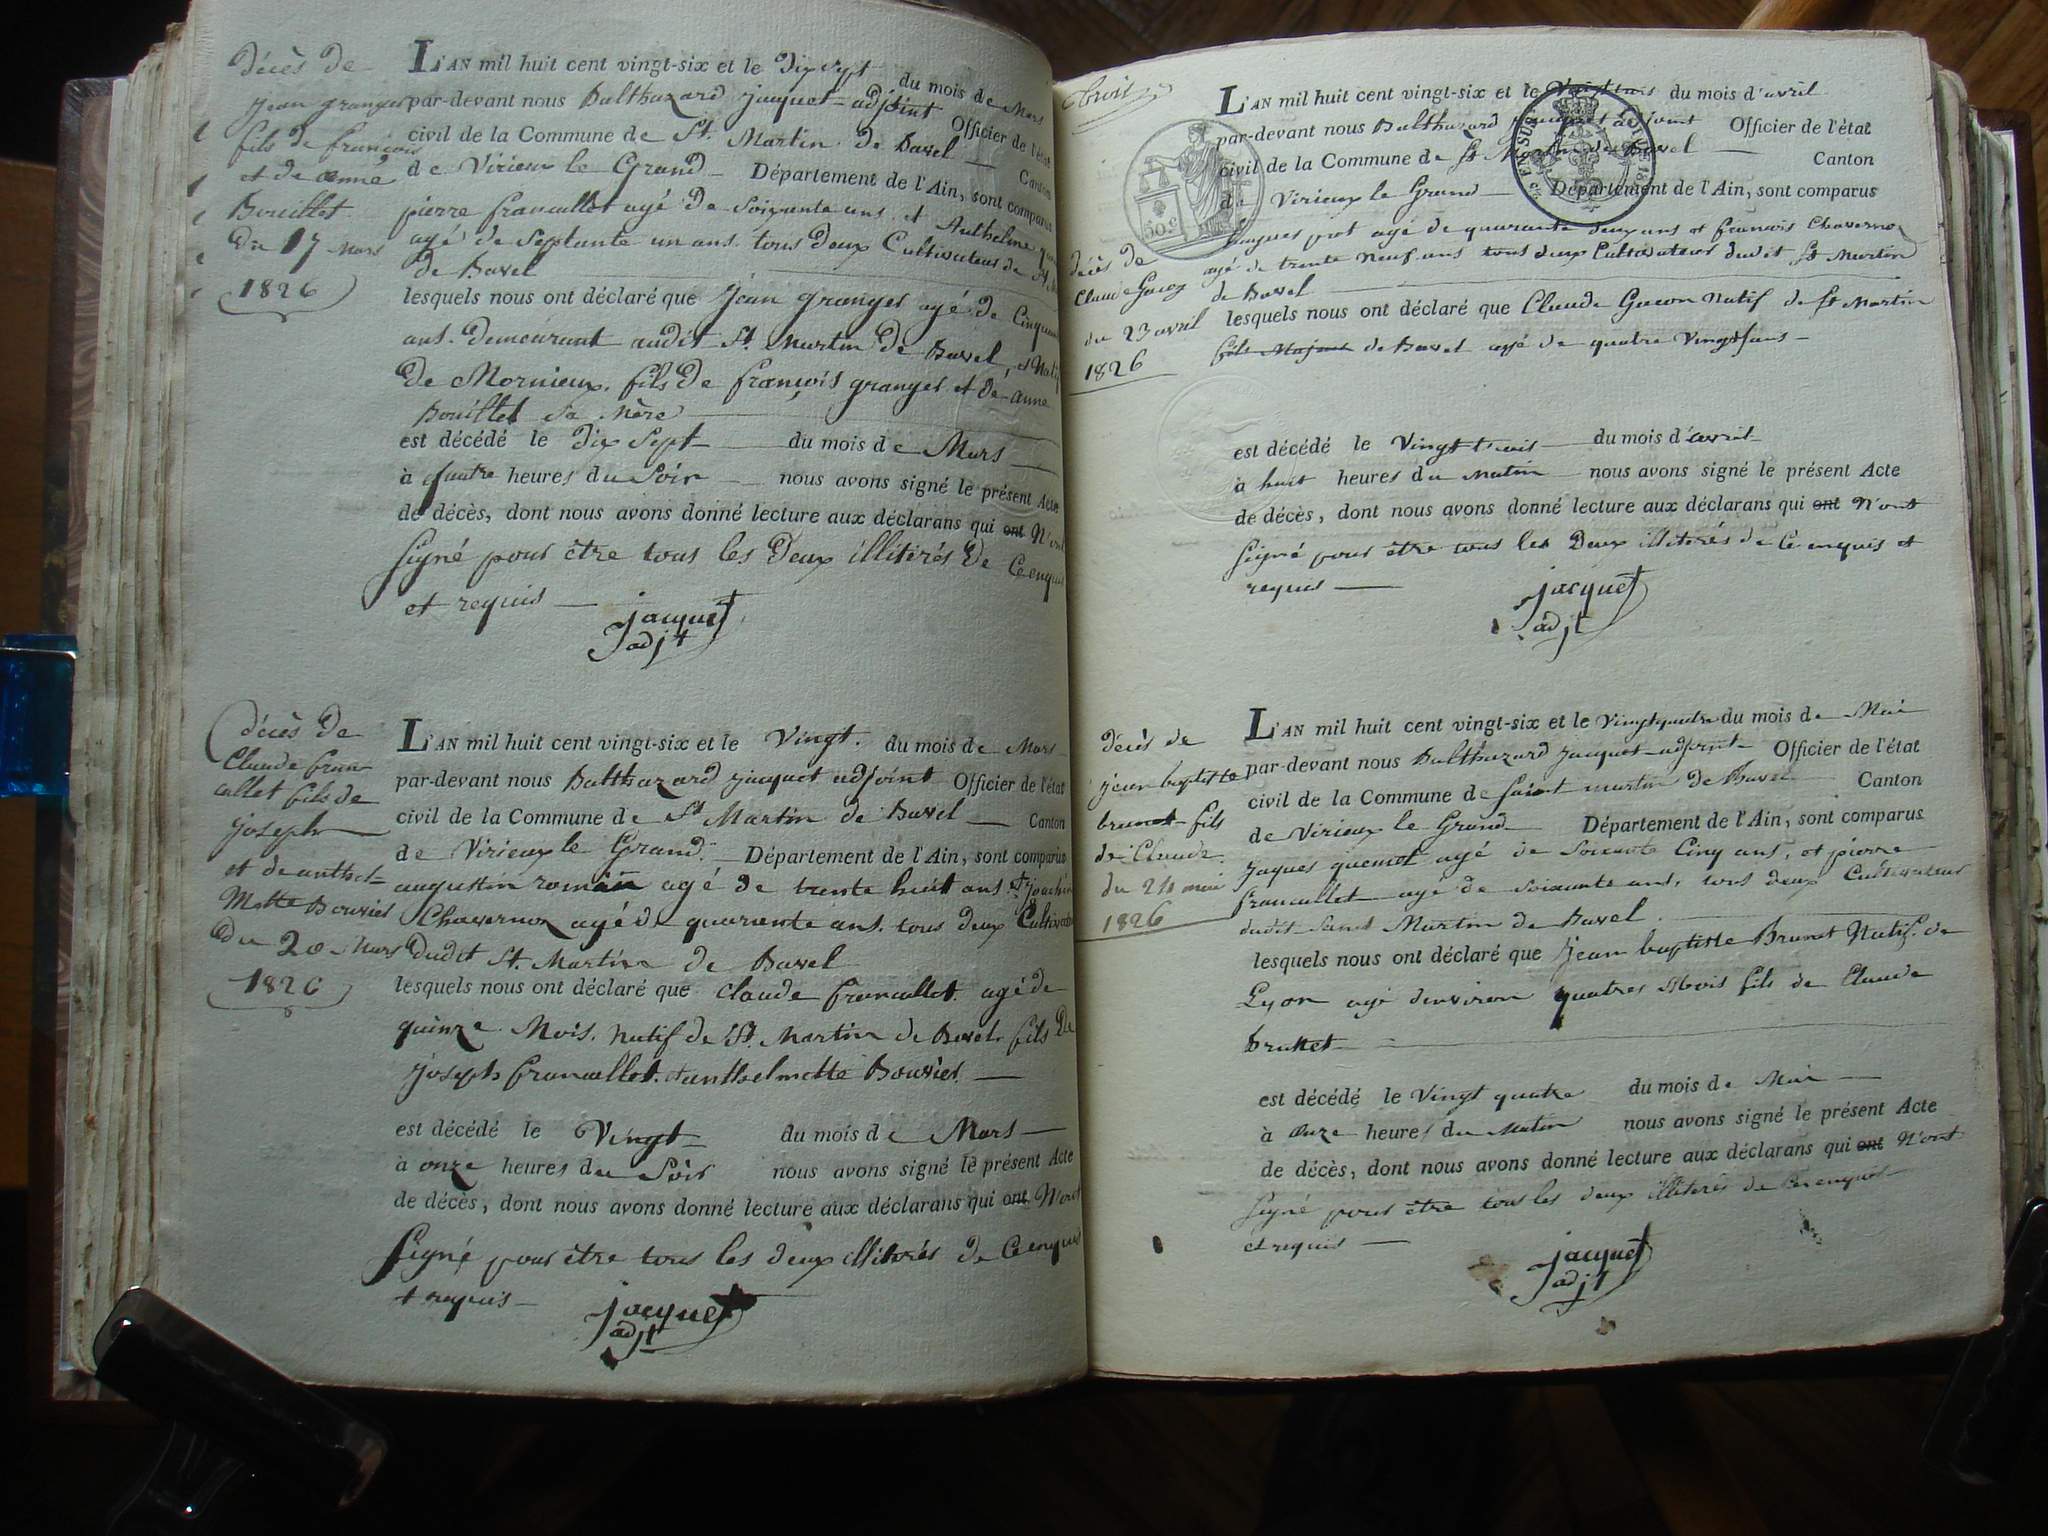 décès de
jean granger
fils de françois
et de anne
Bouillet
du 17 mars
1826
L'AN mil huit cent vingt-six et le dix sept du mois de Mars
par-devant nous Balthazard jacquet adjoint Officier de l'état
civil de la Commune de St. Martin de Bavel Canton
de Virieux le Grand Département de l'Ain, sont comparus
pierre francallet agé de soixante ans et Anthelme
agé de septante un ans tous deux Cultivateurs de St.
de Bavel
lesquels nous ont déclaré que jean granger agé de Cinquante
ans demeurant audit St. Martin de Bavel, et Natif
de Mornieux, fils de françois granger et de anne
Bouillet sa mère
est décédé le dix sept du mois de Mars
à quatre heures du Soir nous avons signé le présent Acte
de décès, dont nous avons donné lecture aux déclarans qui ont N'ont
signé pour être tous les Deux illitirés de Ce enquis
et requis
jacquet
adjt
décès de
Claude fran-
callet fils de
joseph
et de anthel-
Mette Bouvier
du 20 Mars
1826
L'AN mil huit cent vingt-six et le Vingt. du mois de Mars
par-devant nous Balthazard jacquet adjoint Officier de l'état
civil de la Commune de St Martin de Bavel Canton
de Virieux le Grand Département de l'Ain, sont comparus
augustin roman agé de trente huit ans et joachim
Chavernoz agé de quarante ans tous deux Cultivateurs
dudit St. Martin de Bavel
lesquels nous ont déclaré que claude francallet agé de
quinze Mois. natif de St. Martin de Bavel fils de
joseph francallet. et anthelmette Bouvier.
est décédé le Vingt du mois de Mars
à onze heures du Soir nous avons signé le présent Acte
de décès, dont nous avons donné lecture aux déclarans qui ont N'ont
signé pour être tous les deux illitérés de Ce enquis
et requis
jacquet
adjt
30 c
décès de
Claude Gucoz
du 23 avril
1826
L'AN mil huit cent vingt-six et le Vingt trois du mois d'avril
par-devant nous Balthazard jacquet adjoint Officier de l'état
civil de la Commune de St Martin de Bavel Canton
de Virieux le Grand Département de l'Ain, sont comparus
jaques prot agé de quarante deux ans et francois Chavernoz
agé de trente neuf ans tous deux Cultivateurs dudit St Martin
de Bavel
lesquels nous ont déclaré que Claude Gucon Natif de St Martin
fils Majeur de Bavel agé de quatre Vingts ans
est décédé le Vingt trois du mois d'avril
à huit heures du Matin nous avons signé le présent Acte
de décès, dont nous avons donné lecture aux déclarans qui ont N'ont
signé pour être tous les Deux illiterés de Ce enquis et
requis
jacquet
adjt
décès de
jean baptiste
brunet fils
de Claude.
du 24 mai
1826
L'AN mil huit cent vingt-six et le Vingt quatre du mois de Mai
par-devant nous Balthazard jacquet adjoint Officier de l'état
civil de la Commune de saint martin de Bavel Canton
de Virieux le Grand Département de l'Ain, sont comparus
jaques quenot agé de soixante Cinq ans, et pierre
francallet agé de soixante ans, tous deux Cultivateurs
dudit saint Martin de Bavel
lesquels nous ont déclaré que jean baptiste Brunet Natif de
Lyon agé denviron quatres Mois fils de Claude
brunet
est décédé le Vingt quatre du mois de Mai
à Onze heures du Matin nous avons signé le présent Acte
de décès, dont nous avons donné lecture aux déclarans qui ont N'ont
signé pour être tous les deux illiterés de Ce enquis
et requis
jacquet
adjt